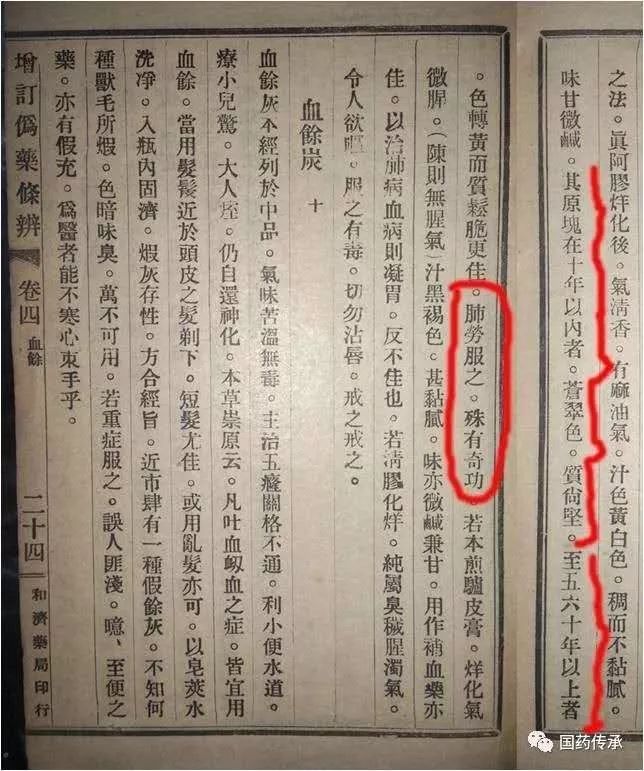 之法。眞阿膠烊化後。氣淸香。有麻油氣。汁色黃白色。稠而不黏膩。
味甘微鹹。其原塊在十年以內者。蒼翠色。質尙堅。至五六十年以上者
。色轉黃而質鬆脆更佳。肺勞服之。殊有奇功。若本煎驢皮膏。烊化氣
微腥。(陳則無腥氣)汁黑褐色。甚黏膩。味亦微鹹兼甘。用作補血藥亦
佳。以治肺病血病則凝胃。反不佳也。若淸膠化烊。純屬臭穢腥濁氣。
令人欲嘔。服之有毒。切勿沾唇。戒之戒之。
血餘炭 十
血餘灰本經列於中品。氣味苦溫無毒。主治五癃關格不通。利小便水道。
療小兒驚。大人痓。仍自還神化。本草崇原云。凡吐血衂血之症。皆宜用
血餘。當用髮鬟近於頭皮之髮剃下。短髮尤佳。或用亂髮亦可。以皂莢水
洗淨。入瓶內固濟。煅灰存性。方合經旨。近市肆有一種假餘灰。不知何
種獸毛所煅。色暗味臭。萬不可用。若重症服之。誤人匪淺。噫、至便之
藥。亦有假充。爲醫者能不寒心束手乎。
增訂僞藥條辨 卷四 血餘 二十四 和濟藥局印行
国药传承